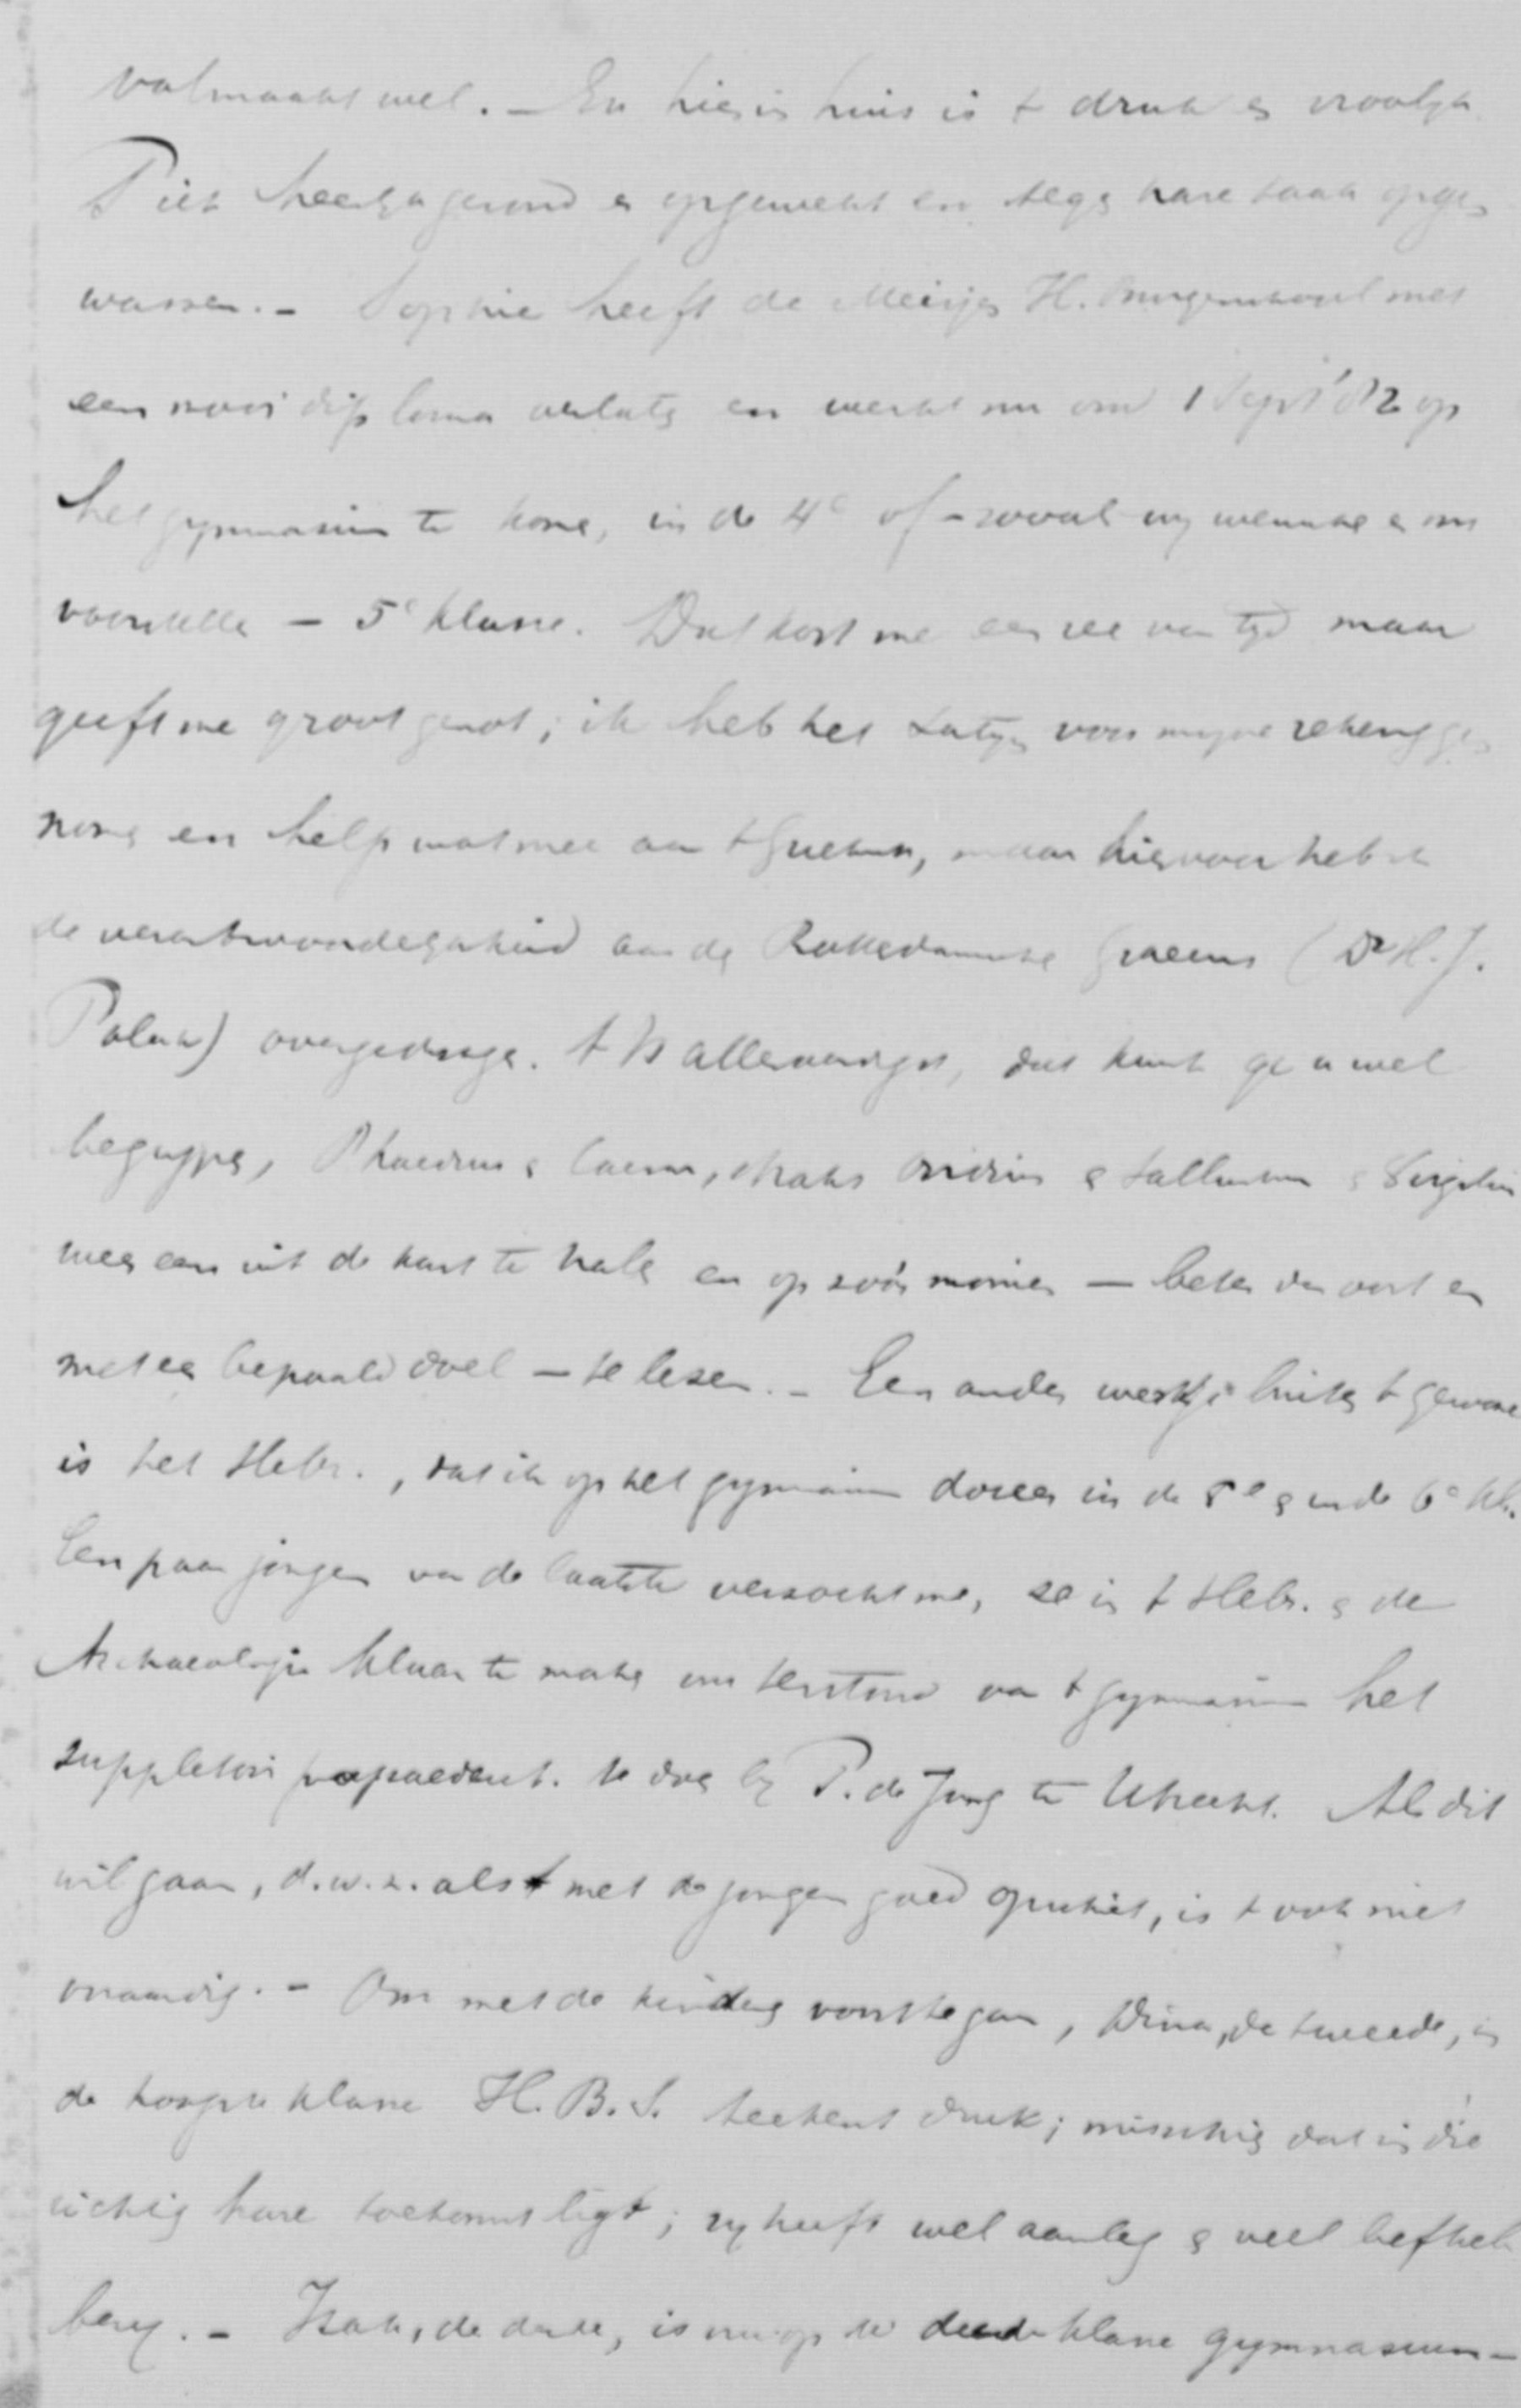 volmaakt wel. – En hier in huis is 't druk en vroolijk.
Piet heerlijk gezond en opgewekt en tegen hare taak opge-
wassen. – Sophie heeft de Meisjes H. Burgerschool met
een mooi diploma verlaten en werkt nu om 1 Sept '82 op
het gymnasium te komen, in de 4e of – zooals wij wenschen en ons
voorstellen – 5e klasse. Dat kost me een zee van tijd maar
geeft me groot genot; ik heb het Latijn voor mijne rekening ge-
nomen en help wat mee aan 't Grieksch, maar hiervoor heb ik
de verantwoordelijkheid aan den Rotterdamschen Graecus (Dr H. J.
Polak) overgedragen. 't Is alleraardigst, dat kunt ge u wel
begrijpen, Phaedrus en Caesar, straks Ovidius en Sallustius en Virgilius
weer eens uit de kast te halen en op zóó'n manier – beter dan ooit en
met een bepaald doel – te lezen. – Een ander werkje buiten 't gewone
is het Hebr., dat ik op het gymnasium doceer in de 5e en in de 6e kl.
Een paar jongens van de laatste verzochten me, ze in 't Hebr. en de
Archaeologie klaar te maken om terstond van 't gymnasium het
suppletoir propaedeut. te doen bij P. de Jong te Utrecht. Als dit
wil gaan, d.w.z. als 't met de jongens goed opschiet, is 't ook niet
onaardig. – Om met de kinderen voort te gaan, Dina, de tweede, in
de hoogste klasse H.B.S. teekent druk; misschien dat in die
richting hare toekomst ligt; zij heeft wel aanleg en veel liefheb-
berij. – Izaak, de derde, is nu op de derde klasse gymnasium –